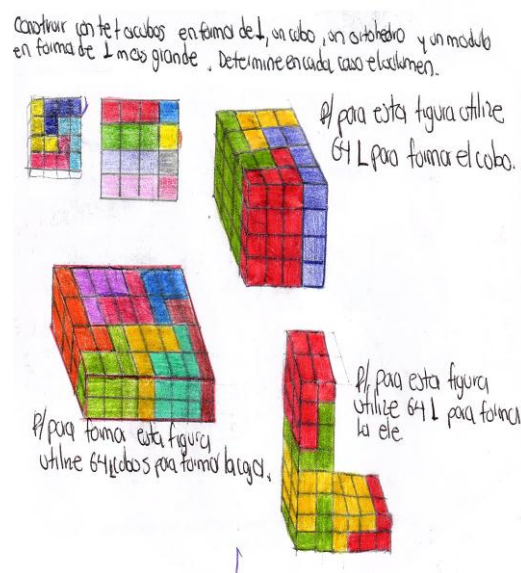 Construir con tetracubos en forma de L, un cubo, un ortohedro y un modulo
en forma de L mas grande. Determine en cada caso el volumen.
R/ para esta figura utilize
64 L para formar el cubo.
R/ para formar esta figura
utilize 64 L cubos para formar la caja.
R/ para esta figura
utilize 64 L para formar
la ele.